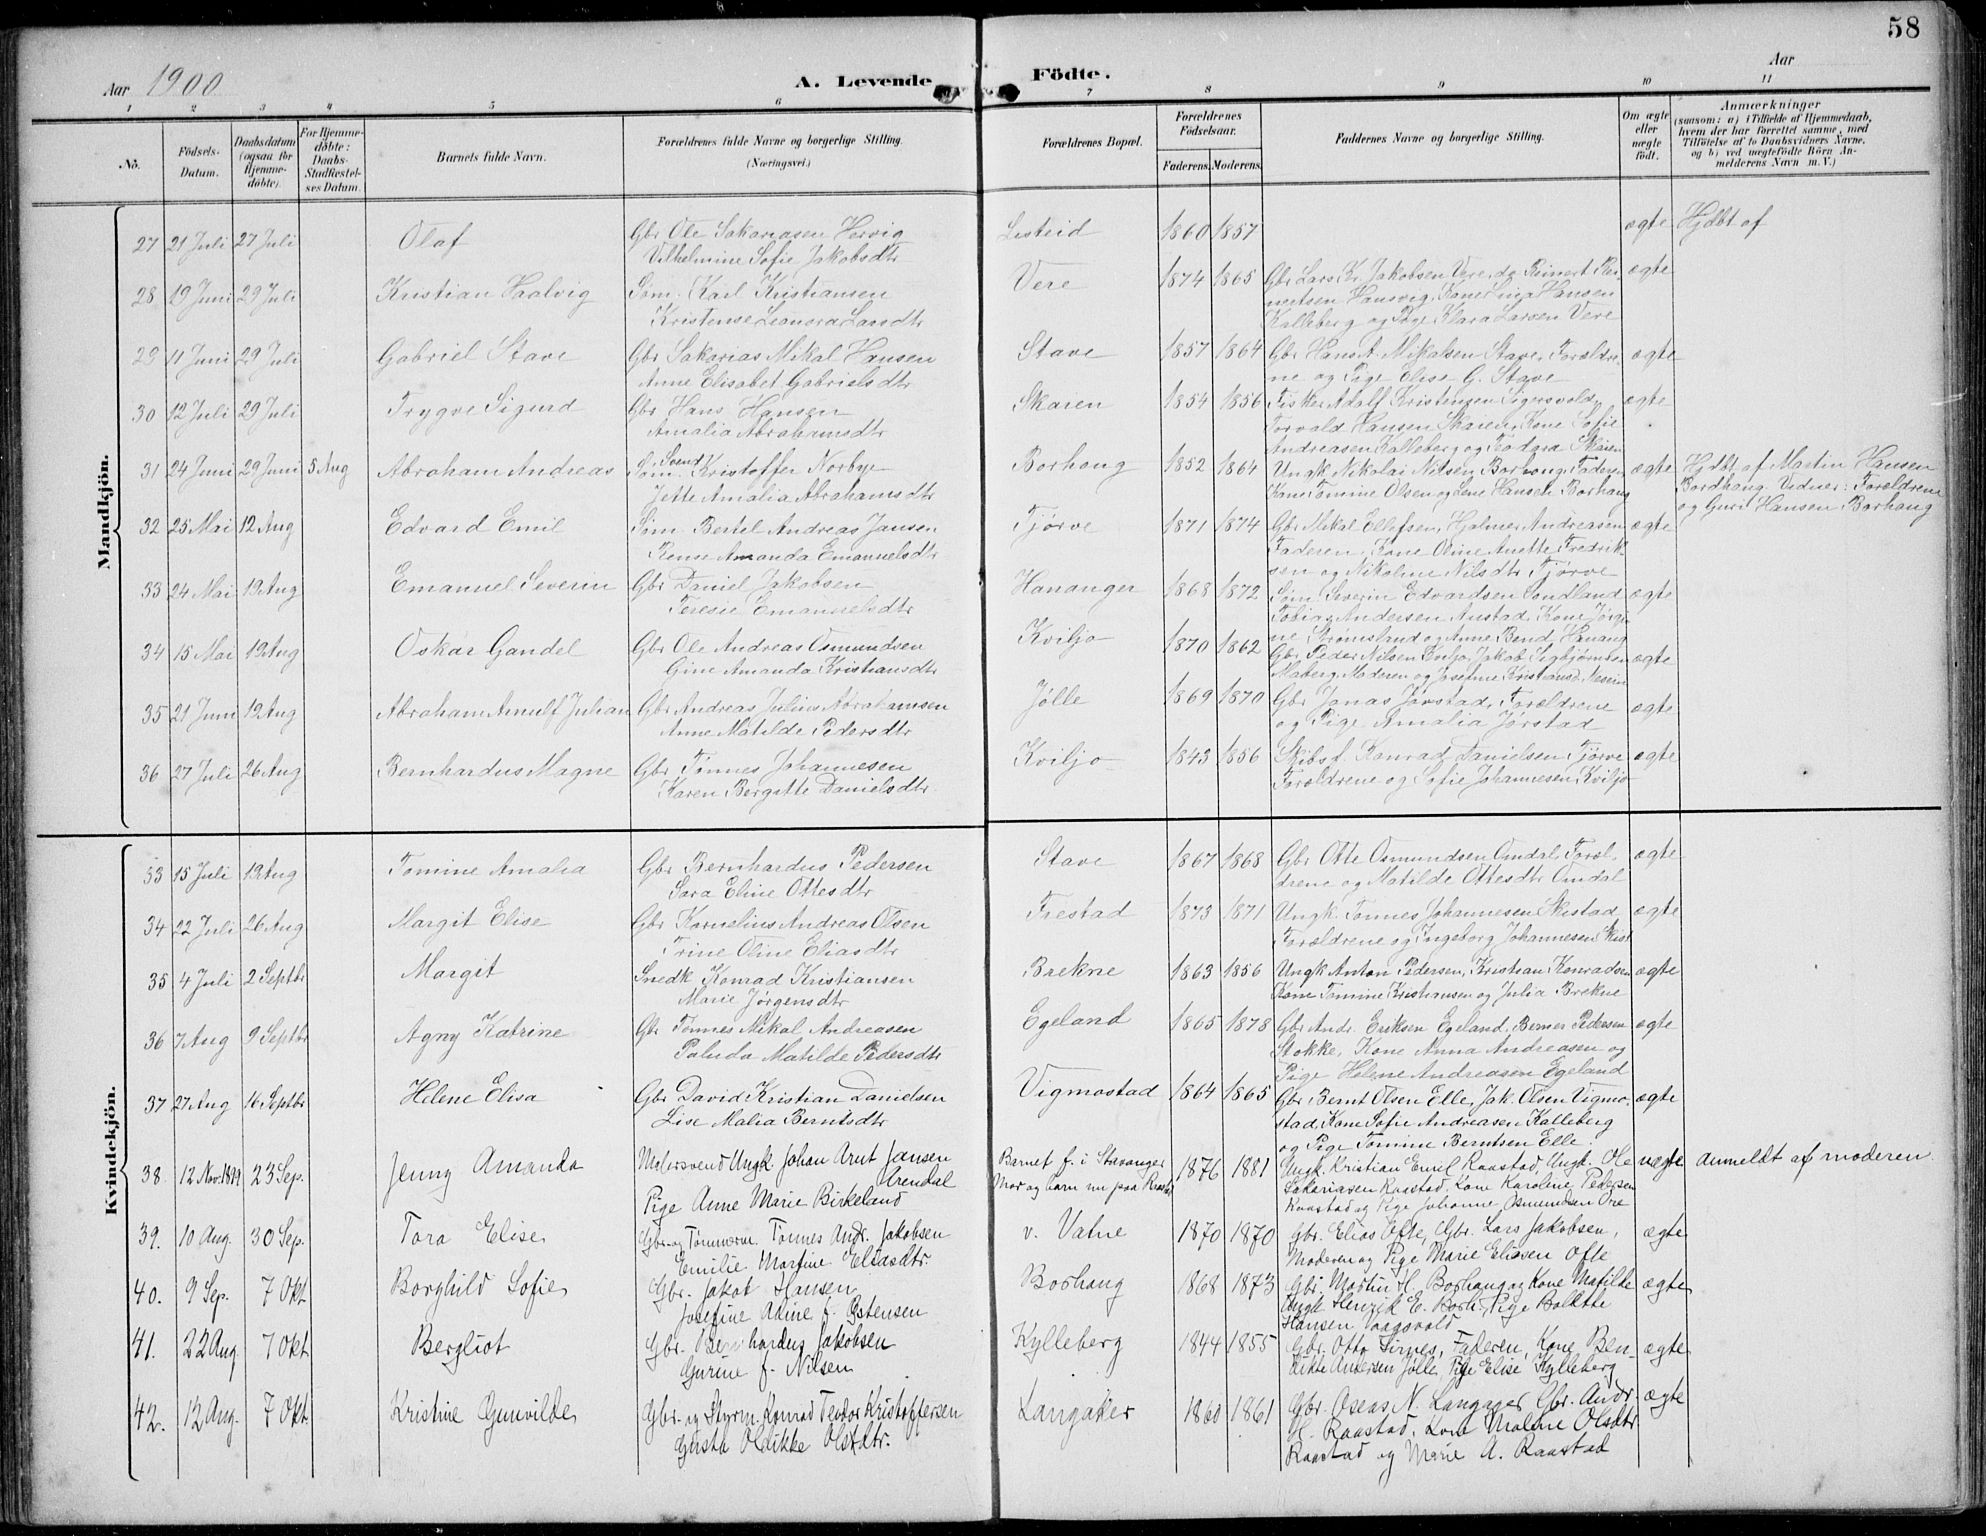 58
Aar 1900
A. Levende Födte.
Aar
1 2 3 4 5 6 7 8 9 10 11
No.
Födsels-Datum.
Daabsdatum (ogsaa for Hjemme-döbte).
For Hjemme-döbte: Daabs-Stadfæstel-ses Datum.
Barnets fulde Navn.
Forældrenes fulde Navne og borgerlige Stilling. (Næringsvei.)
Forældrenes Bopæl.
Forældrenes Födselsaar.
Faderens. Moderens.
Faddernes Navne og borgerlige Stilling.
Om ægte eller uægte födt.
Anmærkninger
(saasom: a) i Tilfælde af Hjemmedaab, hvem der har forrettet samme, med Tilföielse af to Daabsvidners Navne, og b) ved uægtefödte Börn An-melderens Navn m. V.)
Mandkjön.
27 21 Juli 27 Juli Olaf Gbr Ole Sakariasen Hervig Listeid 1860 1857 ægte Hjdbt af
Vilhelmine Sofie Jakobsdtr
28 19 Juni 29 Juli Kristian Haalvig Søm. Karl Kristiansen Vere 1874 1865 Gbr Lars Kr. Jakobsen Vere, do Reinert Rei- ægte
Kristense Leonora Larsdtr nertsen Hansvig, Kone Lina Hansen
Kalleberg og Pige Klara Larsen Vere
29 11 Juni 29 Juli Gabriel Stave Gbr Sakarias Mikal Hansen Stave 1857 1864 Gbr Hans A. Mikalsen Stave, Forældre- ægte
Anne Elisabet Gabrielsdtr ne og Pige Elise G. Stave
30 12 Juli 29 Juli Trygve Sigurd Gbr Hans Hansen Skaren 1854 1856 Fisker Adolf Kristensen Sigersvold, ægte
Amalia Abrahamsdtr Torvald Hansen Skaien, Kone Sofie
Andreasen Kalleberg og Teodora Skaien
31 24 Juni 29 Juni 5 Aug Abraham Andreas Søm. Svend Kristoffer Norbye Borhaug 1852 1864 Ungk Nikolai Nilsen Borhaug, Faderen ægte Hjdbt af Martin Hansen
Jette Amalia Abrahamsdtr Kone Tomine Olsen og Lene Hansen Borhaug Bordhaug. Vidner: Forældrene
og Guri Hansen Borhaug
32 25 Mai 12 Aug Edvard Emil Søm Bertel Andreas Jansen Tjørve 1871 1874 Gbr Mikal Ellefsen, Hjalmer Andreasen ægte
Rense Amanda Emanuelsdtr Faderen, Kone Oline Anette Fredrik-
sen og Nikoline Nilsdtr Tjørve
33 24 Mai 19 Aug Emanuel Severin Gbr Daniel Jakobsen Hananger 1868 1872 Søm Severin Edvardsen Sondland ægte
Teresie Emanuelsdtr Tobias Andersen Austad, Kone Jørgi-
ne Stromsland og Anne Bend. Hanang
34 15 Mai 19 Aug Oskar Gandel Gbr Ole Andreas Osmundsen Kviljo 1870 1862 Gbr Peder Nilsen Kviljo, Jakob Sigbjørnsen ægte
Gine Amanda Kristiansdtr Maberg, Moderen og Josefine Kristiansd.
35 21 Juni 19 Aug Abraham Arnulf Julian Gbr Andreas Julius Abrahamsen Jølle 1869 1870 Gbr Jonas Jørstad, Forældrene ægte
Anne Matilde Pedersdtr og Pige Amalia Jørstad
36 27 Juli 26 Aug Bernhardus Magne Gbr Tønnes Johannesen Kviljo 1843 1856 Skibsf. Konrad Danielsen, Tjørve ægte
Karen Bergitte Danielsdtr Forældrene og Sofie Johannesen, Kviljo
Kvindekjön.
33 15 Juli 19 Aug Tomine Amalia Gbr Bernhardus Pedersen Stave 1867 1868 Gbr Otte Osmundsen Omdal, Foræl- ægte
Sara Eline Ottesdtr drene og Matilde Ottesdtr Omdal
34 22 Juli 26 Aug Margit Elise Gbr Kornelius Andreas Olsen Frestad 1873 1871 Ungk. Tønnes Johannesen Skistad ægte
Trine Oline Eliasdtr Forældrene og Ingeborg Johannesen Skist
35 4 Juli 2 Septbr Margit Snedk Konrad Kristiansen Brekne 1863 1856 Ungk Anton Pedersen, Kristian Konradsen ægte
Marie Jørgensdtr Kone Tomine Kristiansen og Julia Brekne
36 7 Aug 9 Septbr Agny Katrine Gbr Tønnes Mikal Andreasen Egeland 1865 1878 Gbr Andr. Eriksen Egeland, Berner Pedersen ægte
Paluda Matilde Pedersdtr Stokke, Kone Anna Andreasen og
Pige Helene Andreasen Egeland
37 27 Aug 16 Septbr Helene Elisa Gbr David Kristian Danielsen Vigmostad 1864 1865 Gbr Bernt Olsen Elle, Jak. Olsen Vigmo- ægte
Lise Malia Berntsdtr stad, Kone Sofie Andreasen Kalleberg
og Pige Tomine Berntsen Elle.
38. 12 Nov. 1899 23 Sep. Jenny Amanda Malersvend Ungk. Johan Arnt Jansen Arendal Barnet f. i Stavanger 1876 1881 Ungk. Kristian Emil Raastad, Ungk. Ole uægte anmeldt af moderen.
Pige Anne Marie Birkeland Mor og barn nu paa Raastad Sakariasen Raastad, Kone Karoline Pedersen
Raastad og Pige Johanne Osmundsen Ore
39. 10 Aug. 30 Sep. Tora Elise Gbr. og Tømmerm. Tønnes Andr. Jakobsen v. Vatne 1870 1870 Gbr. Elias Ofte, Gbr. Lars Jakobsen, ægte
Emilie Martine Eliasdtr. Moderen og Pige Marie Eliasen Ofte
40. 9 Sep. 7 Okt Borghild Sofie Gbr. Jakob Hansen Borhaug 1868 1873 Gbr. Martin H. Borhaug og Kone Matilde ægte
Josefine Adine f. Østensen Ungk Henrik E. Borh., Pige Bolette
Hansen Vaagsvold
41. 22 Aug 7 Okt Bergliot Gbr. Bernhardus Jakobsen Kylleberg 1844 1855 Gbr. Otto Sirnes, Faderen, Kone Ben- ægte
Gurine f. Nilsen dikte Andersen Jølle, Pige Elise Kylleberg
42. 12 Aug. 7 Okt Kristine Gunvilde Gbr. og Styrm. Konrad Teodor Kristoffersen Langaker 1860 1861 Gbr. Oseas N. Langager, Gbr. Andr. ægte
Gusta Oldikke Olsdtr. H. Raastad, Kone Malene Olsdtr
Raastad og Marie A. Raastad